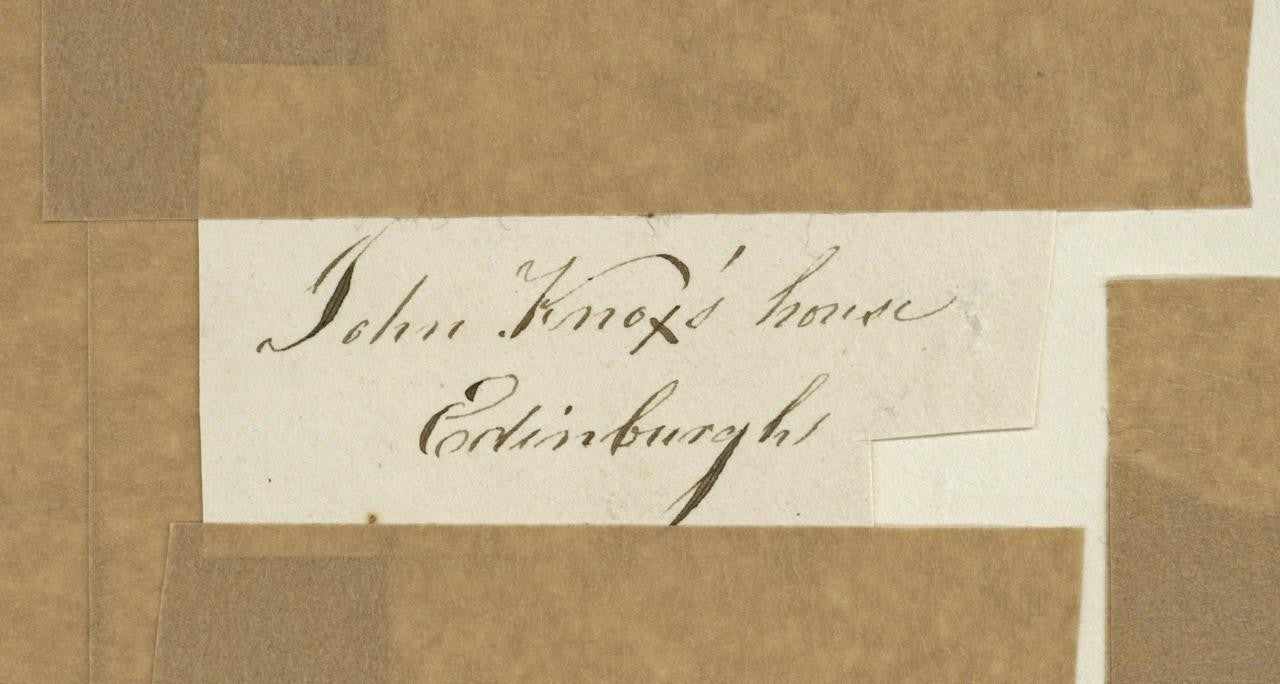 John Knox's house
Edinburgh